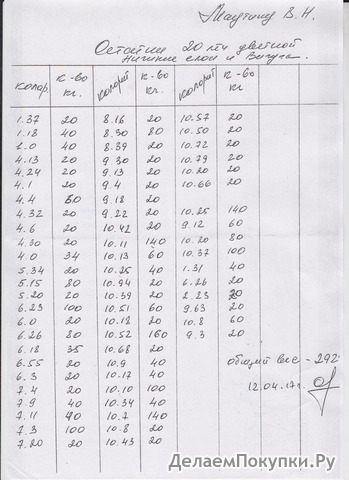 В. Н.
Остатки 20 лти цветной
колор. к-во кг. колорит к-во кг. колорит к-во кг
1.37 20 8.16 20 10.57 20
1.18 40 8.30 80 10.50 20
2.0 40 8.39 20 10.72 20
4.13 20 9.30 20 10.79 20
4.24 20 9.13 20 10.20 20
4.1 20 9.4 20 10.66 20
4.4 60 9.18 20
4.32 20 9.22 20 10.25 140
4.6 20 10.42 20 9.12 60
4.30 20 10.11 140 10.20 80
4.0 34 10.13 60 10.37 100
5.34 20 10.25 40 1.31 40
5.15 80 10.94 20 6.26 20
5.20 20 10.39 20 2.23 20
6.23 100 10.51 60 9.63 20
6.0 20 10.18 20 10.8 60
6.26 80 10.52 160 9.3 20
6.18 35 10.68 20
6.55 20 10.9 40 общий вес - 292
6.3 20 10.17 40
7.4 20 10.10 100 12.04.17г.
7.9 40 10.34 40
7.11 40 10.7 140
7.3 100 10.8 20
7.20 20 10.43 20
ДелаемПокупки.Ру